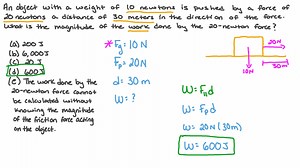 An object with a weight of 10 newtons is pushed by a force of
20 newtons a distance of 30 meters in the direction of the force.
What is the magnitude of the work done by the 20-newton force?
(a) 200 J
(b) 6,000 J
(c) 20 J
(d) 600 J
(e) The work done by the
20-newton force cannot
be calculated without
knowing the magnitude
of the friction force acting
on the object.
* Fg = 10 N
Fp = 20 N
d = 30 m
W = ?
20N
10N
30m
W = F∥d
W = Fpd
W = 20N (30m)
W = 600 J